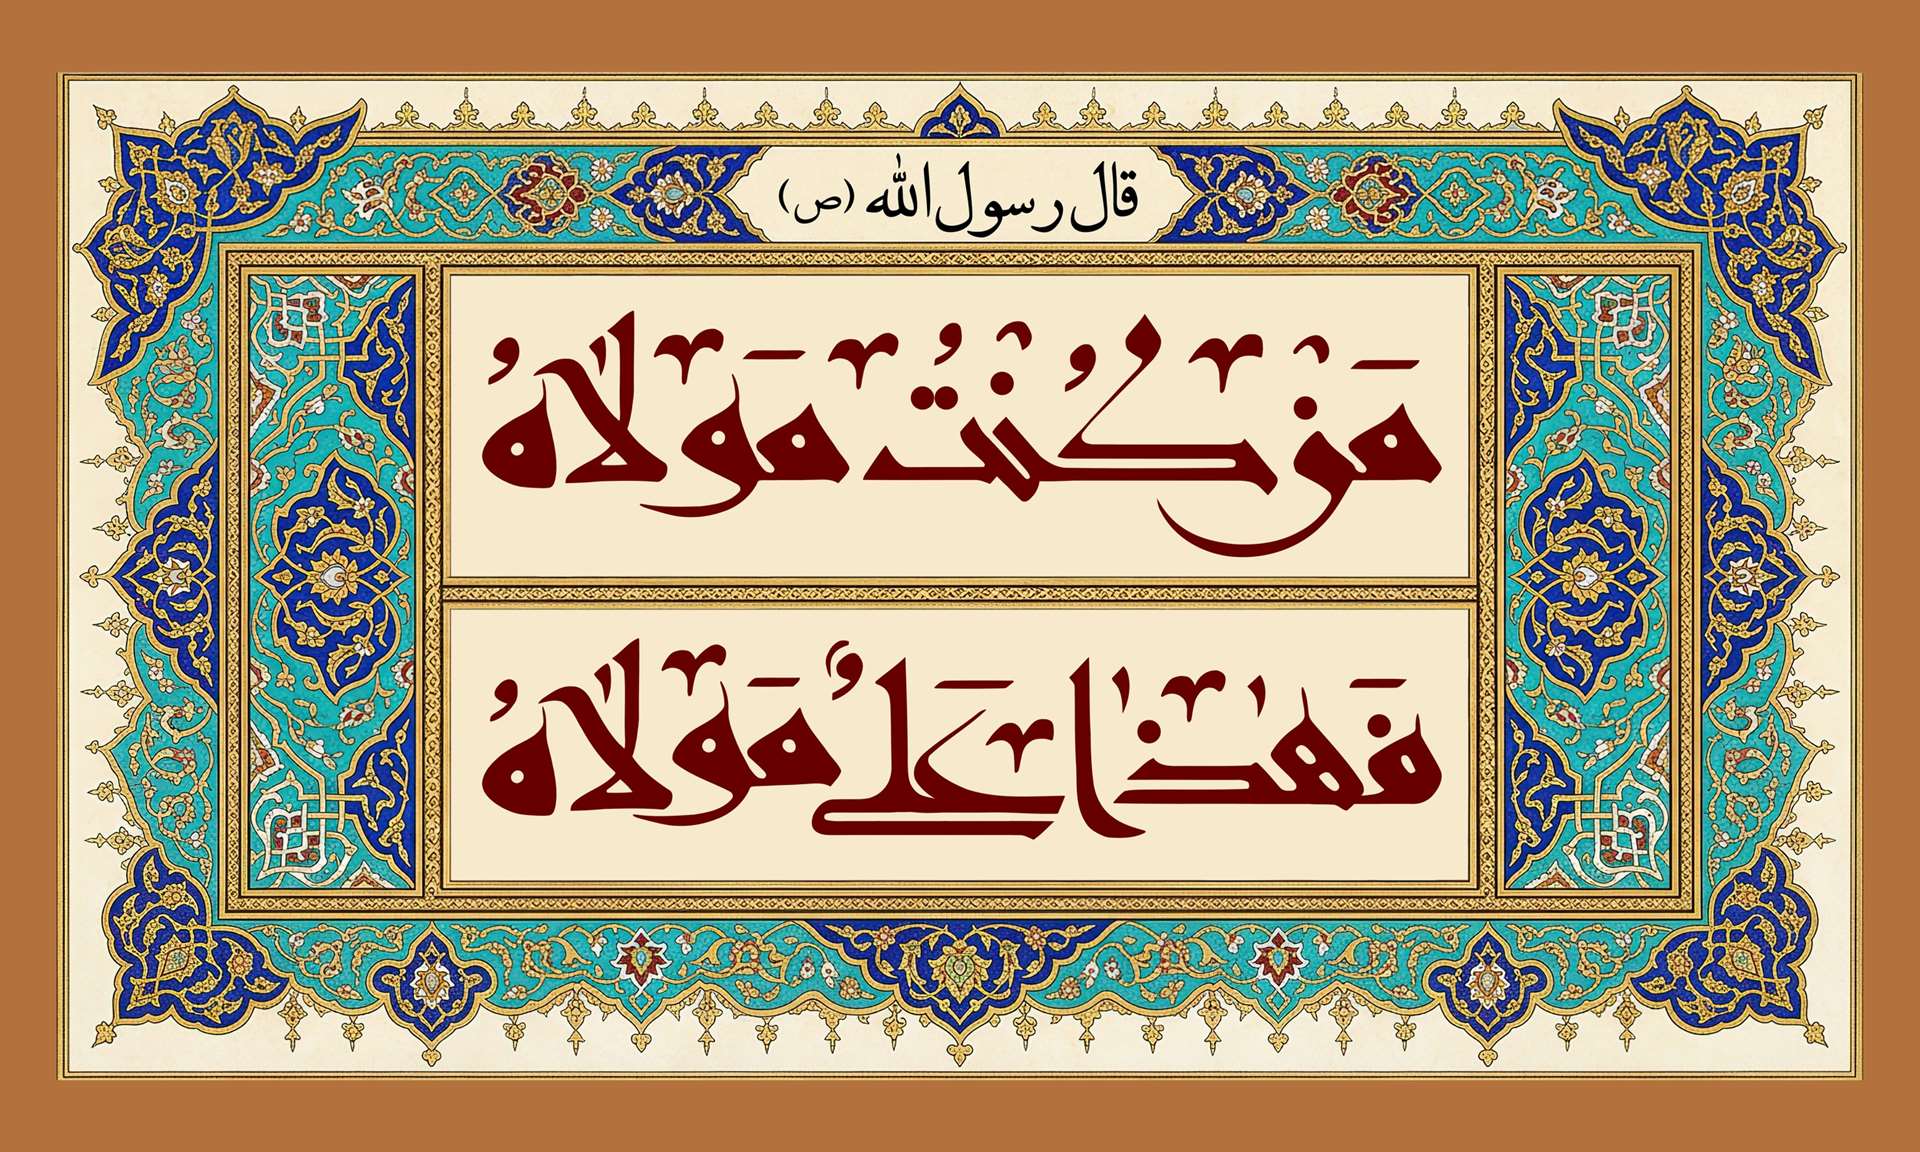 قال رسول الله (ص)
مَنْ كُنْتُ مَوْلاهُ
فَهذا عَلیٌّ مَوْلاهُ